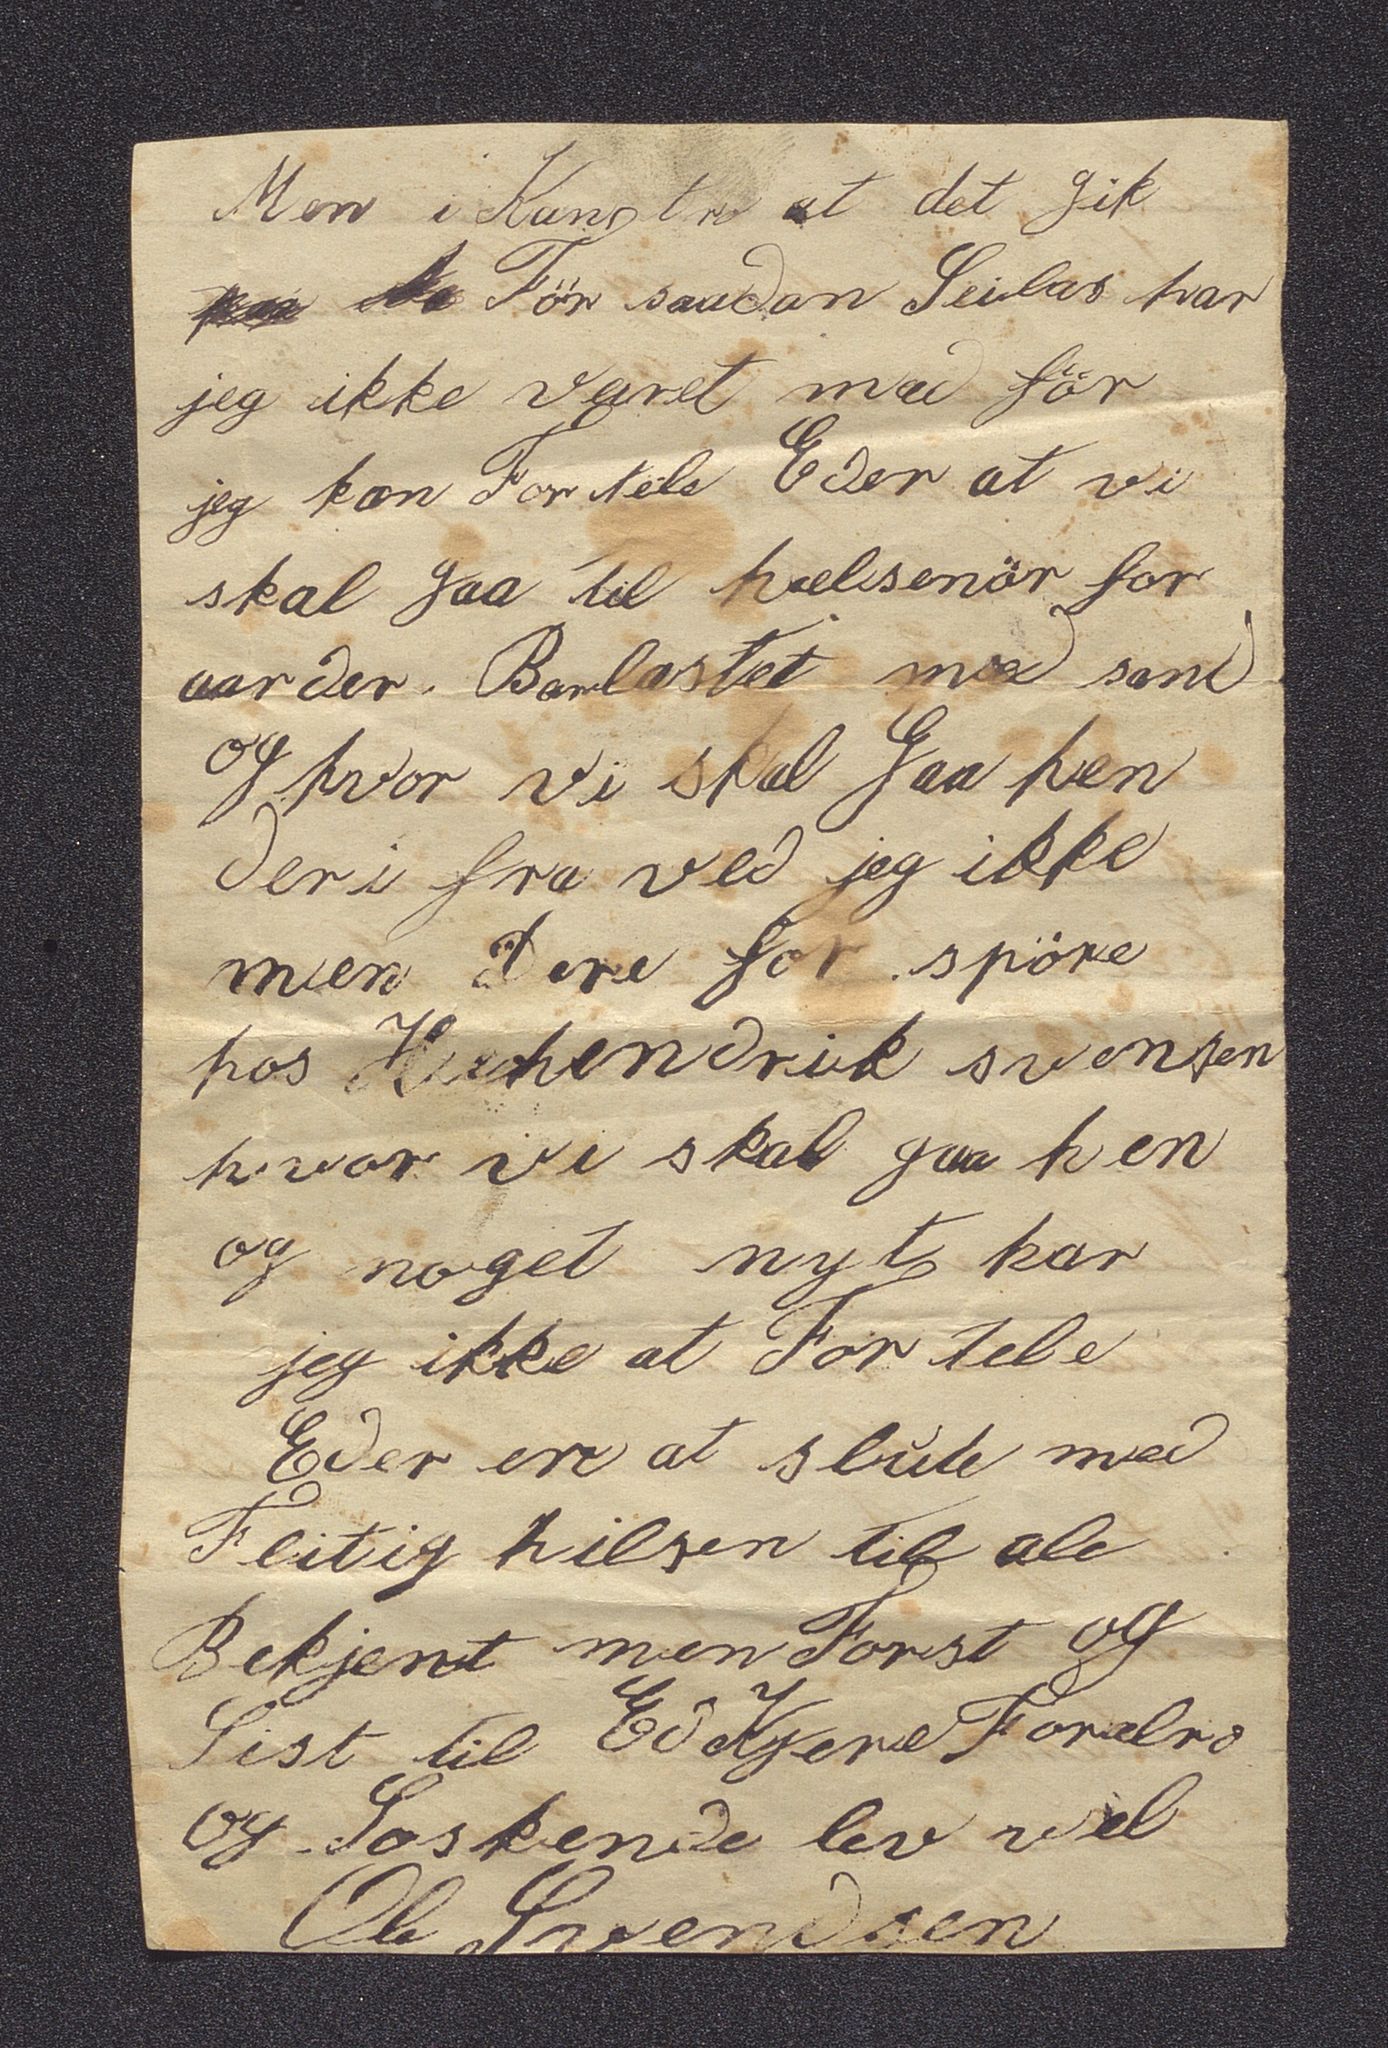 Men i Kan tro at det gik
För saadan Seilas har
jeg ikke været med för
jeg kan Fortele Eder at vi
skal gaa til helsenör for
aar der. Barlastet med sand
og hvor vi skal Gaa hen
deri fra ved jeg ikke
men Dere for spöre
hos Hendrik svensen
hvor vi skal gaa hen
og noget nyt har
jeg ikke at For tele
Eder en at slute med
Flitig hilsen til ale
Bekjent men Forst og
Sist til Ed Kjere Forælre
og Soskende lev vel
Ole Svendsen